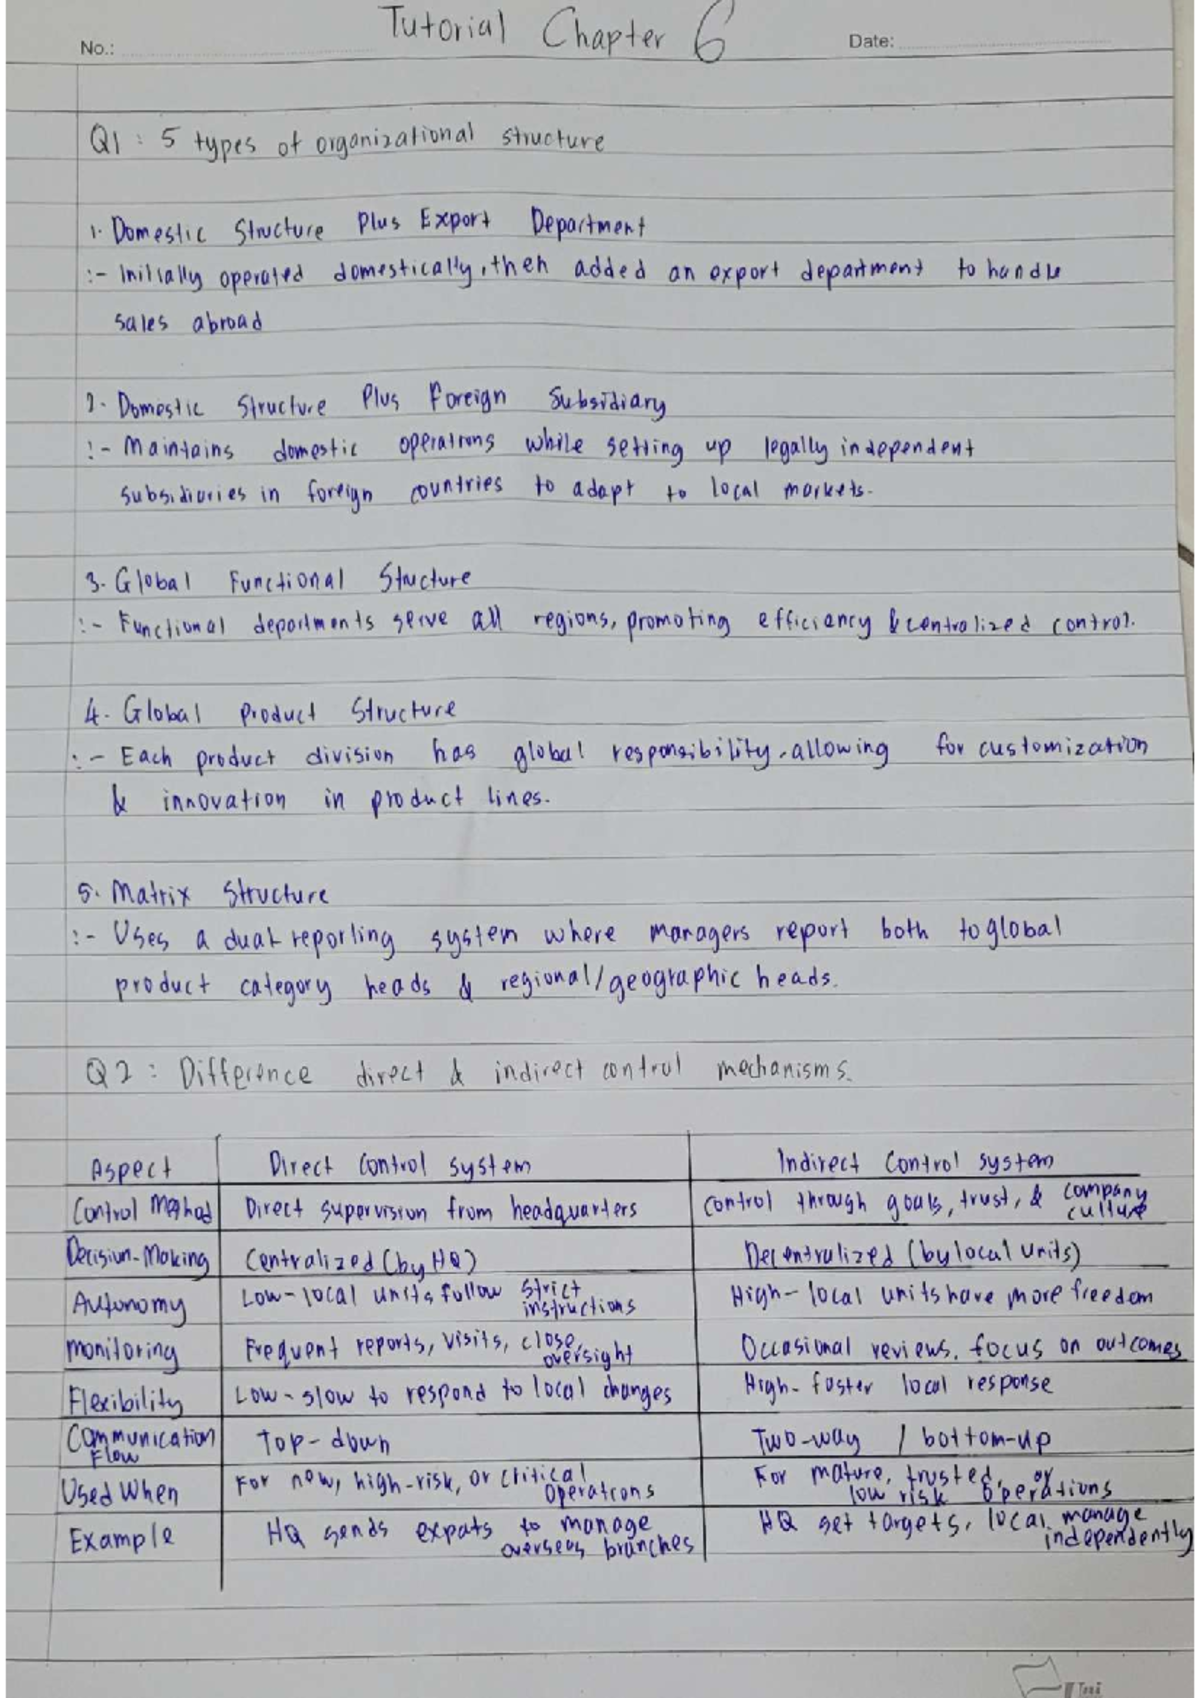 Tutorial Chapter 6
No.:
Date:
Q1 : 5 types of organizational structure
1. Domestic Structure Plus Export Department
:- Initially operated domestically, then added an export department to handle
sales abroad
2. Domestic Structure Plus Foreign Subsidiary
:- Maintains domestic operations while setting up legally independent
subsidiaries in foreign countries to adapt to local markets.
3. Global Functional Structure
:- Functional departments serve all regions, promoting efficiency & centralized control.
4. Global Product Structure
:- Each product division has global responsibility, allowing for customization
& innovation in product lines.
5. Matrix Structure
:- Uses a dual reporting system where managers report both to global
product category heads & regional/geographic heads.
Q2 : Difference direct & indirect control mechanisms.
Aspect Direct Control system Indirect Control system
Control Method Direct supervision from headquarters Control through goals, trust, & company culture
Decision-Making Centralized (by HQ) Decentralized (by local units)
Autonomy Low-local units follow strict instructions High-local units have more freedom
Monitoring Frequent reports, visits, close oversight Occasional reviews, focus on outcomes
Flexibility Low-slow to respond to local changes High-faster local response
Communication Flow Top-down Two-way / bottom-up
Used When For new, high-risk, or critical operations For mature, trusted, or low risk operations
Example HQ sends expats to manage overseas branches HQ set targets, local manage independently